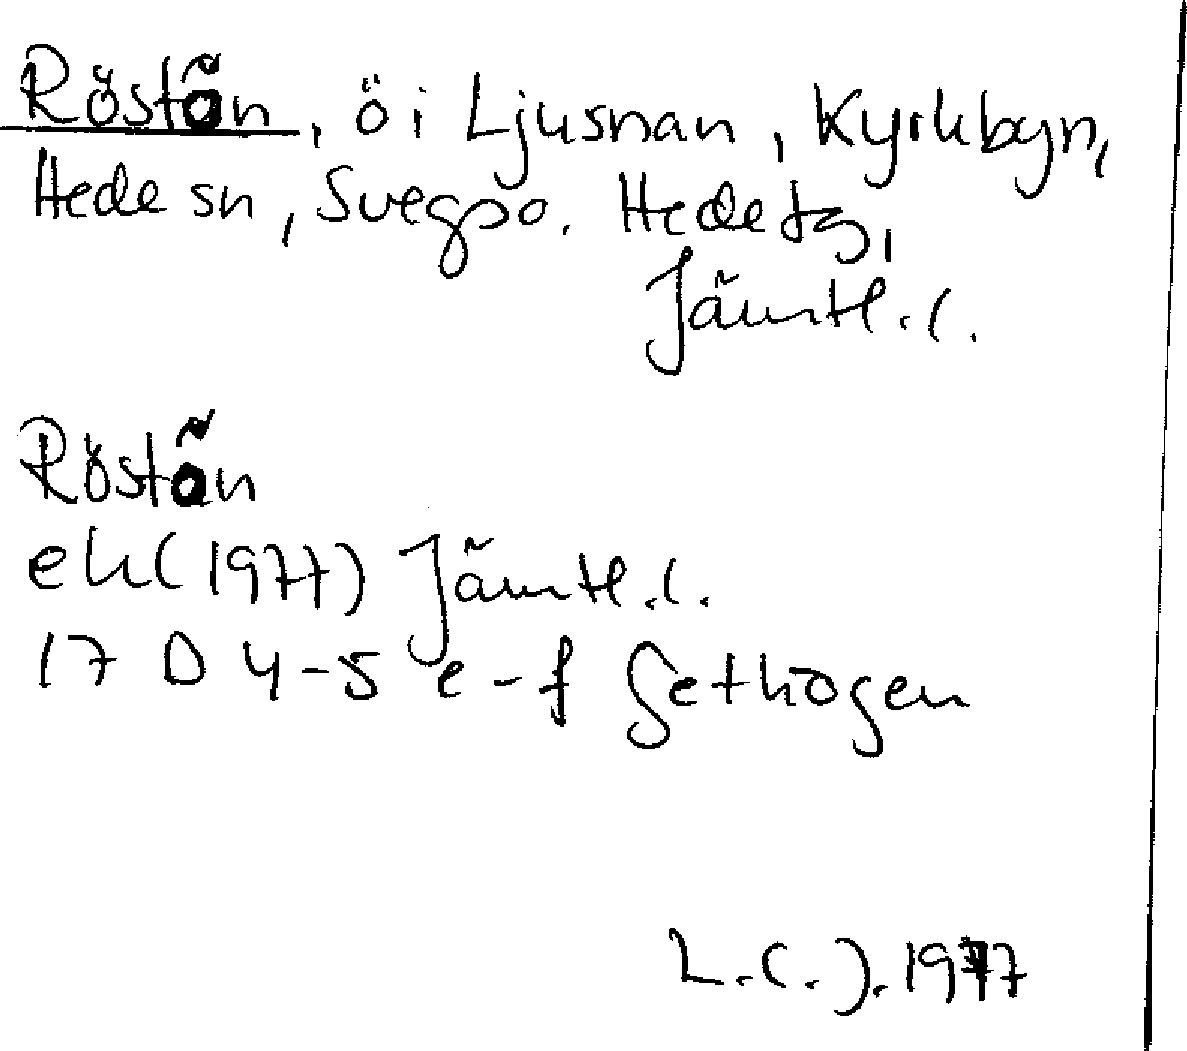 Röstön, ö i Ljusnan, Kyrkbyn,
Hede sn, Svegs o. Hede tg,
Jämtl.l.
Röstön
ek(1977) Jämtl.l.
17 D 4-5 e-f Gethogen
L.C.J. 1977